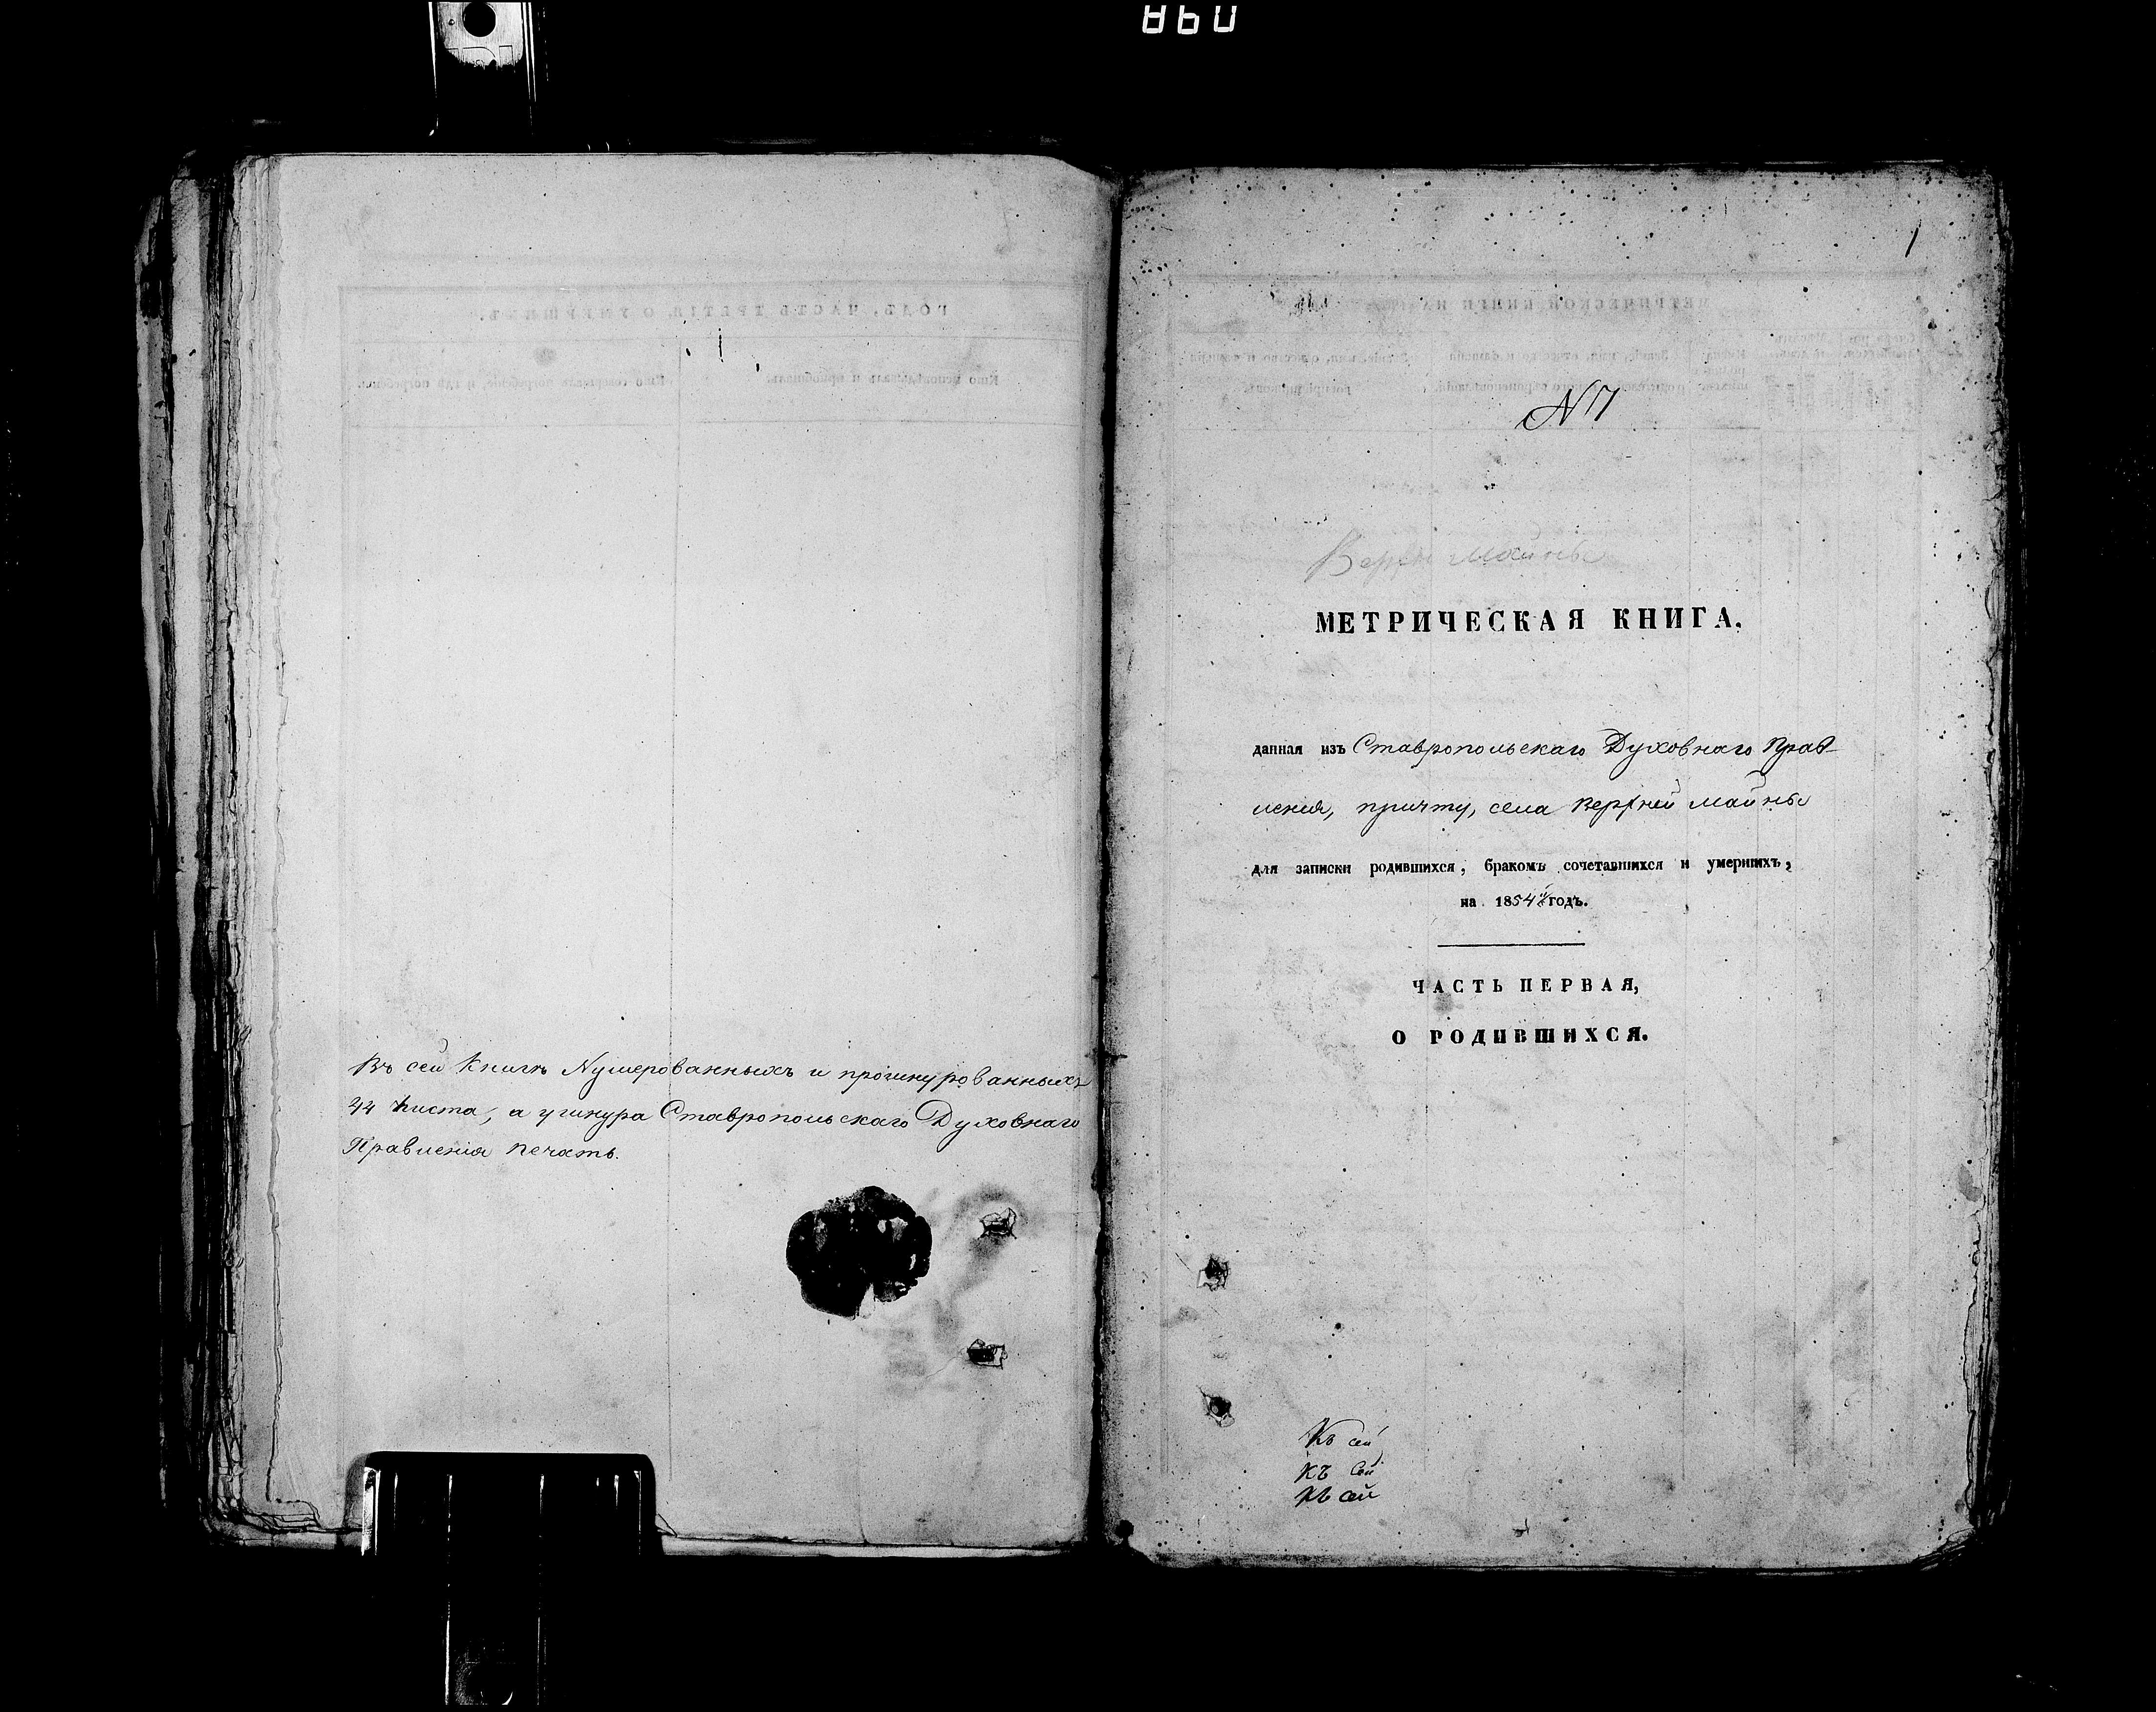 Въ сей книгѣ Нумерованныхъ и прошнурованныхъ
44 Листа, а у шнура Ставропольскаго Духовнаго
Правленія печать.
1
N 7
Верхн Майны
МЕТРИЧЕСКАЯ КНИГА,
данная изъ Ставропольскаго Духовнаго Прав-
ленія, причту, села Верхней Майны
для записки родившихся, бракомъ сочетавшихся и умершихъ,
на 1854й годъ.
ЧАСТЬ ПЕРВАЯ,
О РОДИВШИХСЯ.
Къ сей
КЪ Сей
Къ сей